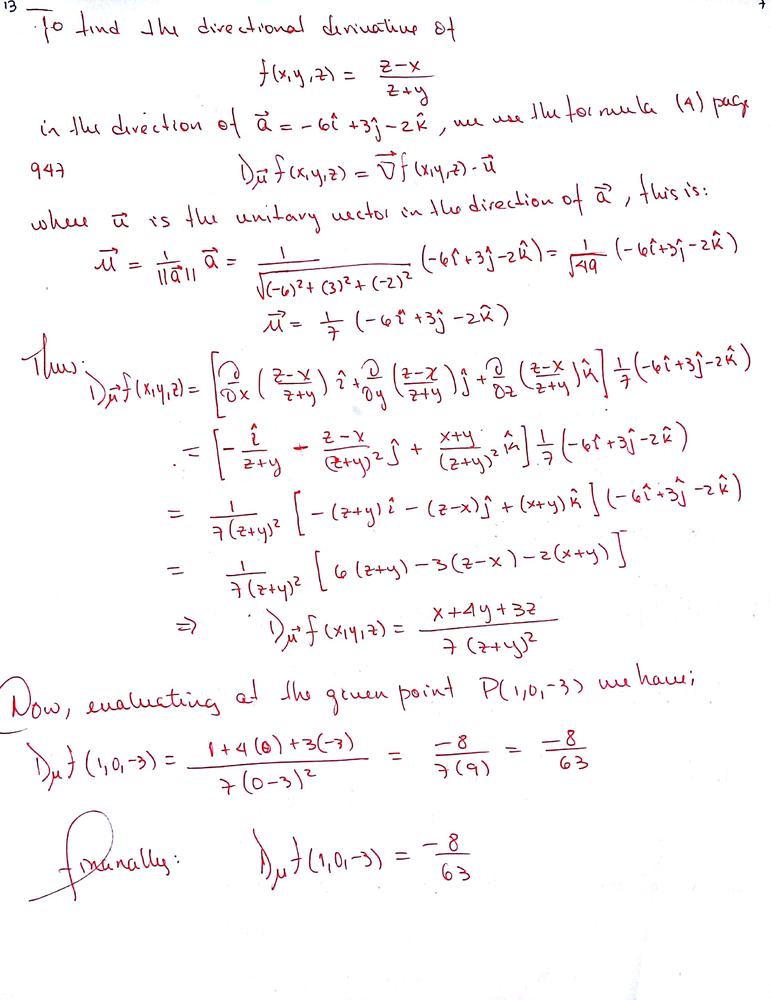 13
To find the directional derivative of
f(x,y,z) = \frac{z-x}{z+y}
in the direction of \vec{a} = -6î+3ĵ-2k̂, we use the formula (4) page
947 D_{\vec{u}} f(x,y,z) = \vec{∇} f(x,y,z)·\vec{u}
where \vec{u} is the unitary vector in the direction of \vec{a}, this is:
\vec{u} = \frac{1}{||\vec{a}||} \vec{a} = \frac{1}{\sqrt{(-6)^2+(3)^2+(-2)^2}} (-6î+3ĵ-2k̂) = \frac{1}{\sqrt{49}} (-6î+3ĵ-2k̂)
\vec{u} = \frac{1}{7} (-6î+3ĵ-2k̂)
Thus: D_{\vec{u}} f(x,y,z) = [\frac{∂}{∂x} (\frac{z-x}{z+y}) î + \frac{∂}{∂y} (\frac{z-x}{z+y}) ĵ + \frac{∂}{∂z} (\frac{z-x}{z+y}) k̂] \frac{1}{7} (-6î+3ĵ-2k̂)
= [-\frac{î}{z+y} - \frac{z-x}{(z+y)^2} ĵ + \frac{x+y}{(z+y)^2} k̂] \frac{1}{7} (-6î+3ĵ-2k̂)
= \frac{1}{7(z+y)^2} [-(z+y)î - (z-x)ĵ + (x+y)k̂] (-6î+3ĵ-2k̂)
= \frac{1}{7(z+y)^2} [6(z+y) -3(z-x) -2(x+y)]
⇒ D_{\vec{u}} f(x,y,z) = \frac{x+4y+3z}{7(z+y)^2}
Now, evaluating at the given point P(1,0,-3) we have;
D_u f(1,0,-3) = \frac{1+4(0)+3(-3)}{7(0-3)^2} = \frac{-8}{7(9)} = \frac{-8}{63}
finanally: D_u f(1,0,-3) = \frac{-8}{63}